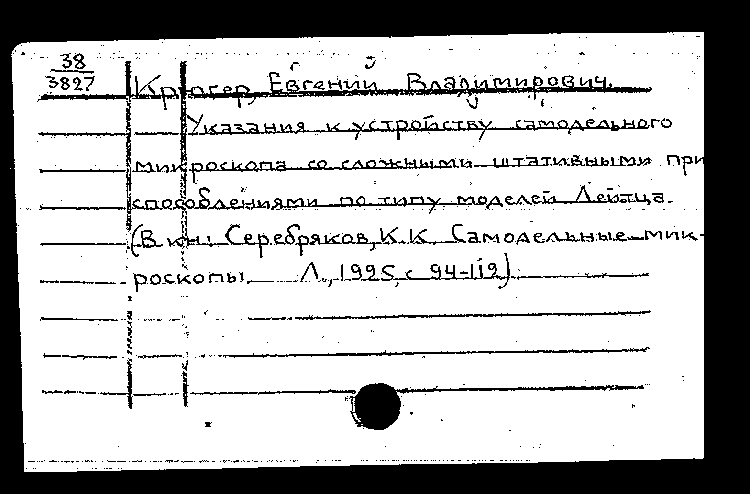 38
3827
Крюгер, Евгений Владимирович.
Указания к устройству самодельного
микроскопа со сложными штативными при
способлениями по типу моделей Лейтца.
(В кн: Серебряков, К.К. Самодельные мик-
роскопы Л., 1925, с 94-112)